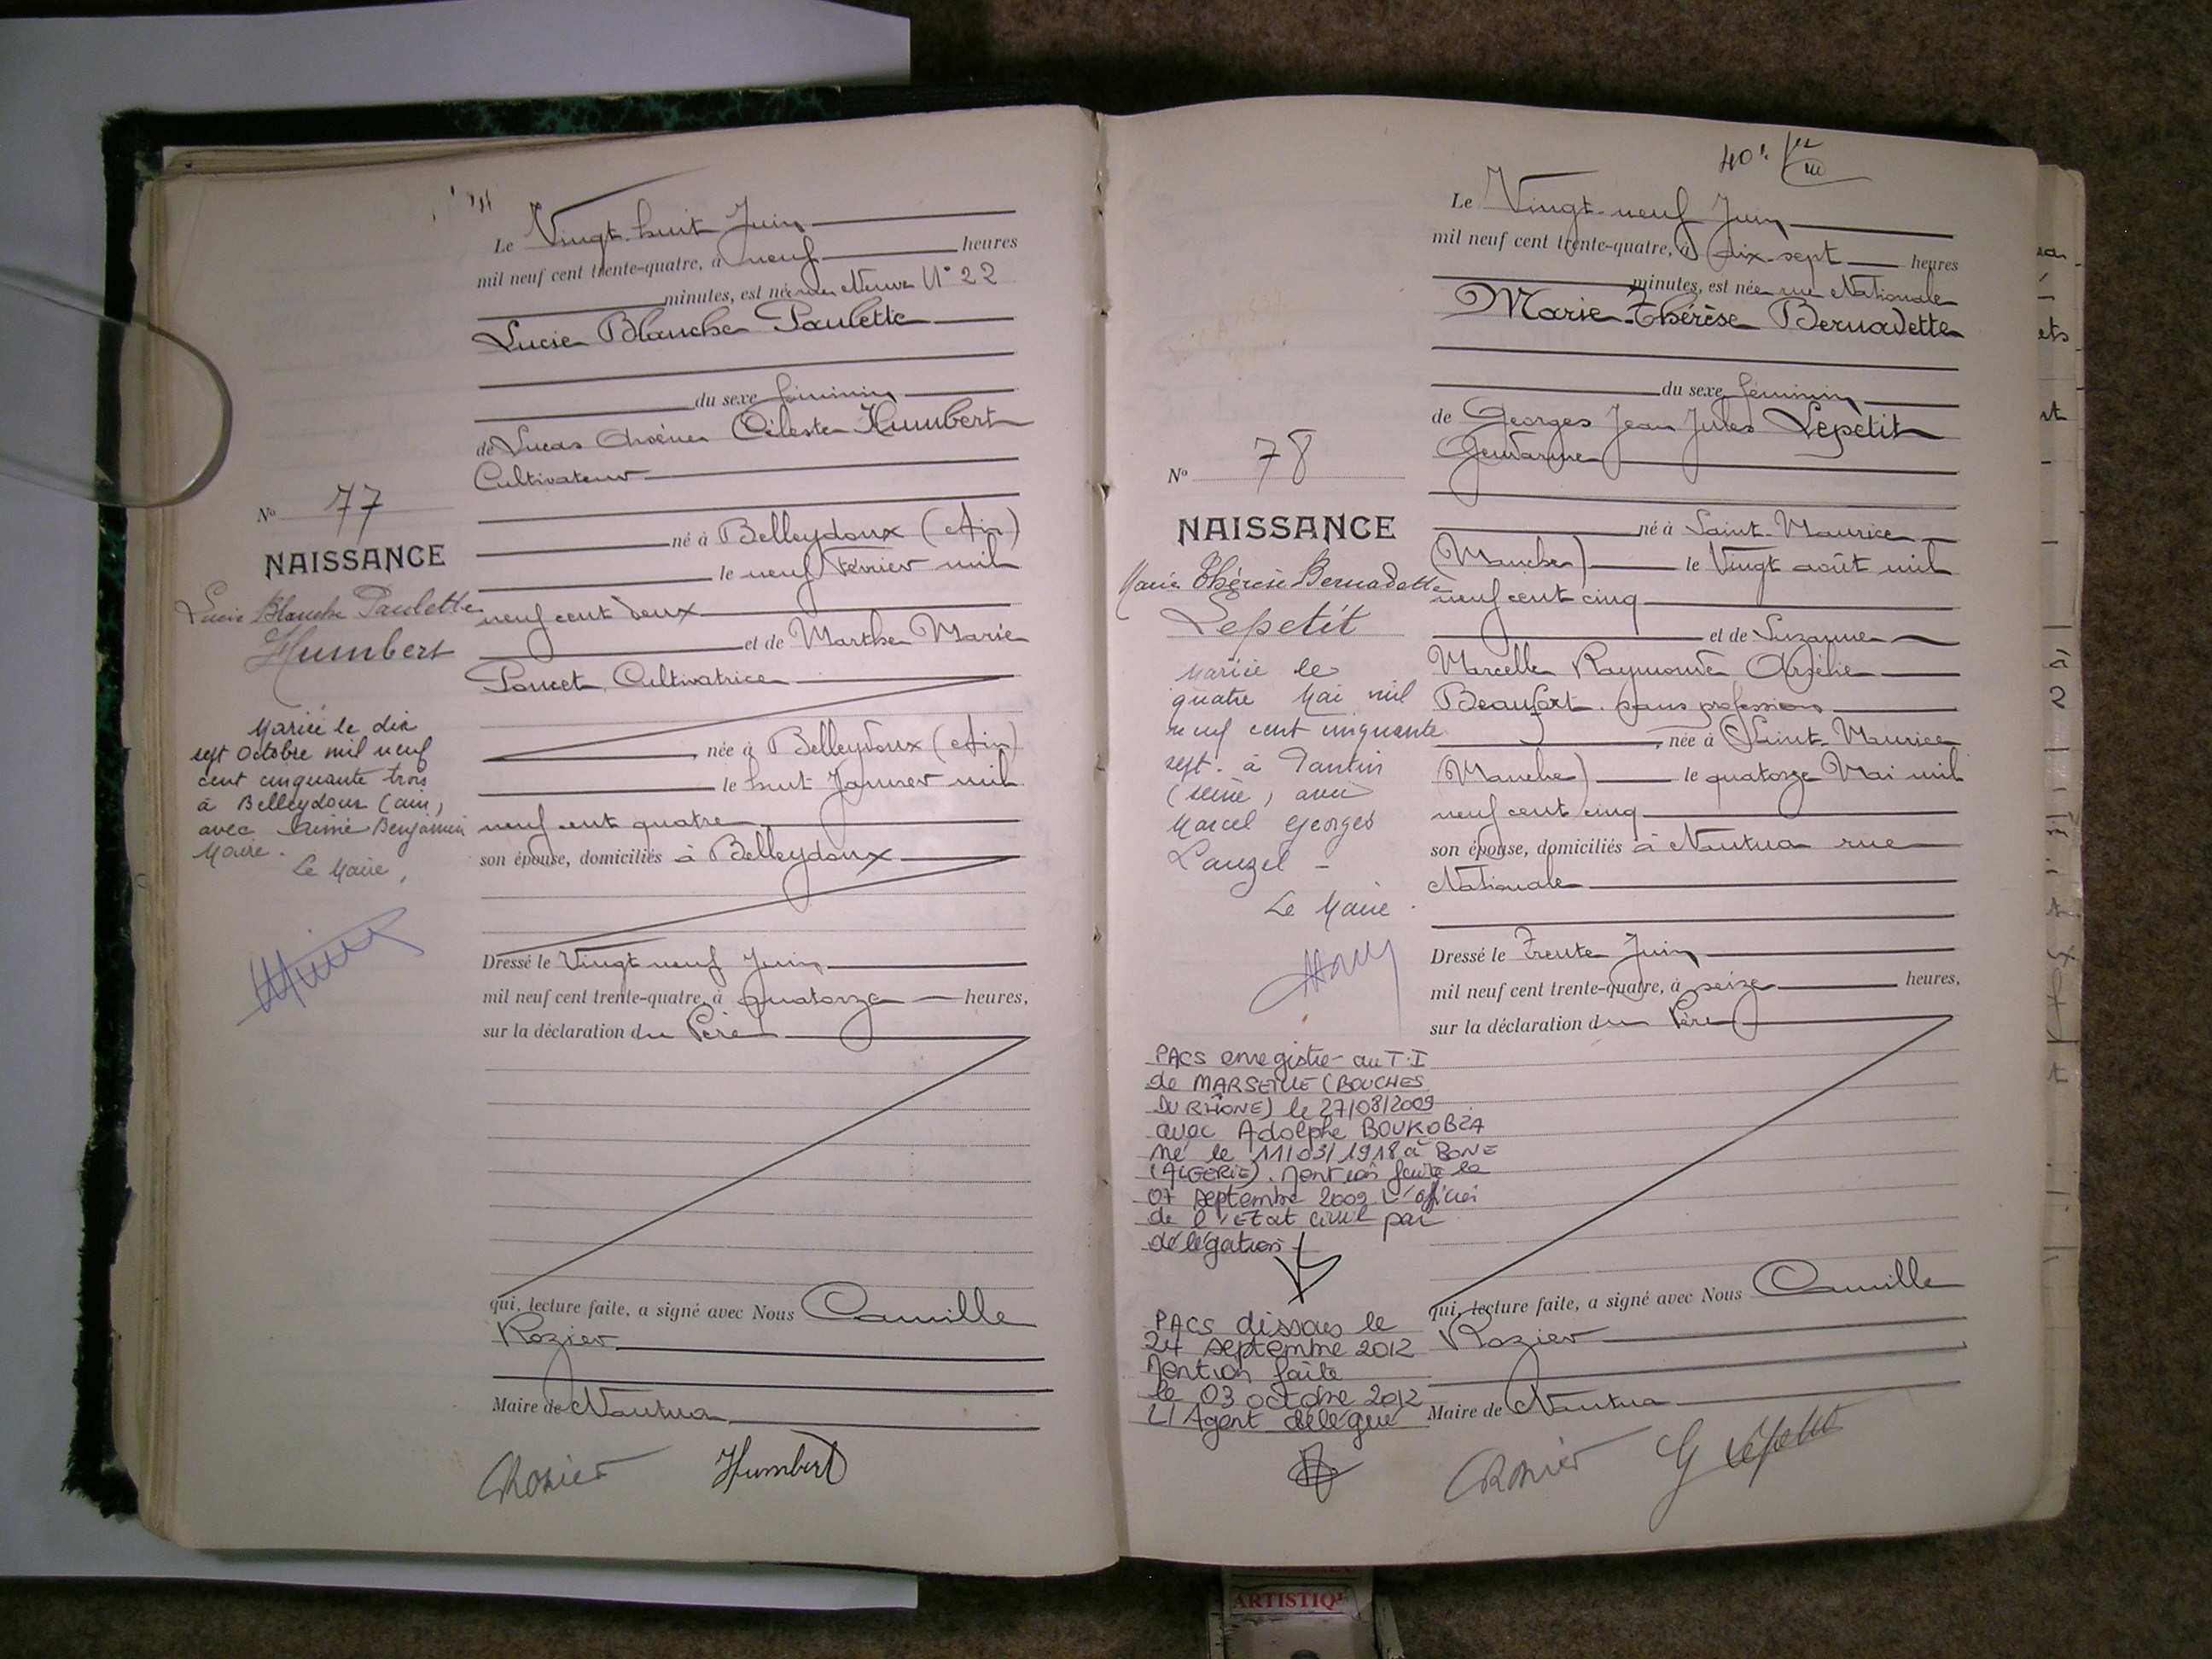 Le Vingt-huit Juin
mil neuf cent trente-quatre, à neuf heures
minutes, est née rue Neuve N° 22
Lucie Blanche Paulette
du sexe féminin
de Lucas Arsène Céleste Humbert
Cultivateur
né à Belleydoux (Ain)
le neuf Février mil
neuf cent deux
et de Marthe Marie
Poncet Cultivatrice
née à Belleydoux (Ain)
le huit Janvier mil
neuf cent quatre
son épouse, domiciliés à Belleydoux
Dressé le Vingt neuf Juin
mil neuf cent trente-quatre, à quatorze heures,
sur la déclaration du Père
qui, lecture faite, a signé avec Nous Camille
Rozier
Maire de Nantua
CRozier Humbert
No 77
NAISSANCE
Lucie Blanche Paulette
Humbert
Mariée le dix
sept Octobre mil neuf
cent cinquante trois
à Belleydoux (ain)
avec Aimé Benjamin
Maire.
Le Maire,
40
Le Vingt-neuf Juin
mil neuf cent trente-quatre, à dix-sept heures
minutes, est née rue Nationale
Marie-Thérèse Bernadette
du sexe féminin
de Georges Jean Jules Lepetit
Gendarme
né à Saint-Maurice
(Manche) le Vingt août mil
neuf cent cinq
et de Suzanne
Marcelle Raymonde Arsélie
Beaufort sans profession
née à Saint-Maurice
(Manche) le quatorze Mai mil
neuf cent cinq
son épouse, domiciliés à Nantua rue
Nationale
Dressé le Trente Juin
mil neuf cent trente-quatre, à seize heures,
sur la déclaration du Père
qui, lecture faite, a signé avec Nous Camille
Rozier
Maire de Nantua
CRozier G Lepetit
No 78
NAISSANCE
Marie Thérèse Bernadette
Lepetit
Mariée le
quatre Mai mil
neuf cent cinquante
sept. à Pantin
(Seine) avec
Marcel Georges
Lauzel -
Le Maire
PACS enregistré au T.I
de MARSEILLE (BOUCHES
DU RHÔNE) le 27/08/2009
avec Adolphe BOUKOBZA
né le 11/03/1918 à BONE
(ALGERIE). Mention faite le
07 septembre 2009 L'officier
de l'Etat civil par
délégation
PACS dissous le
24 septembre 2012
Mention faite
le 03 octobre 2012
L'Agent délégué
ARTISTIQ